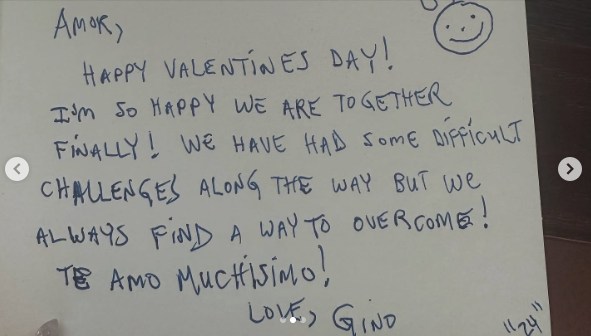 AMOR,
HAPPY VALENTINES DAY!
I'm SO HAPPY WE ARE TOGETHER
FINALLY! WE HAVE HAD SOME DIFFICULT
CHALLENGES ALONG THE WAY BUT WE
ALWAYS FIND A WAY TO OVERCOME!
TE AMO MUCHISIMO!
LOVE, GINO
"24"